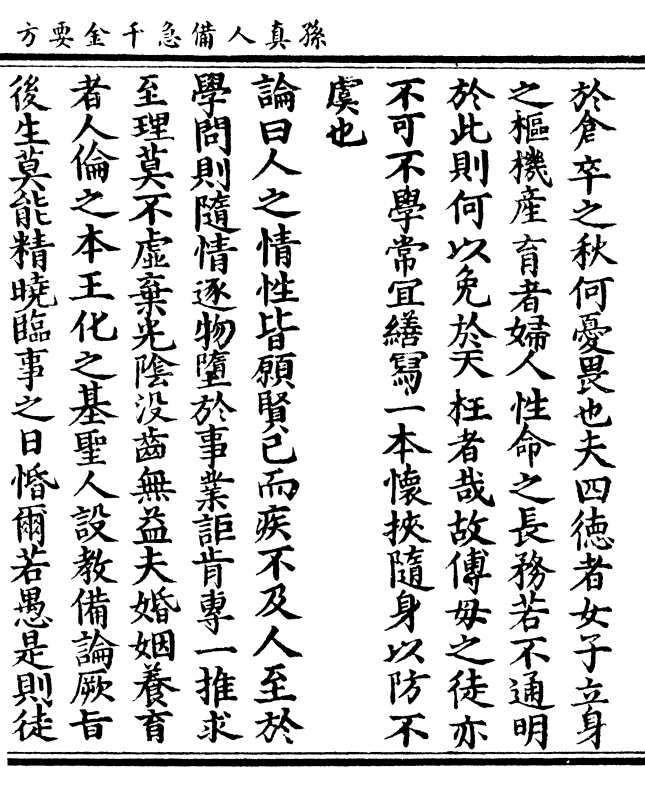 孫真人備急千金要方
於倉卒之秋何憂畏也夫四徳者女子立身
之樞機產育者婦人性命之長務若不通明
於此則何以免於夭枉者哉故傅母之徒亦
不可不學常宜繕寫一本懷挾隨身以防不
虞也
論曰人之情性皆願賢己而疾不及人至於
學問則隨情逐物墮於事業詎肯專一推求
至理莫不虛棄光陰没齒無益夫婚姻養育
者人倫之本王化之基聖人設教備論厥旨
後生莫能精曉臨事之日惛爾若愚是則徒